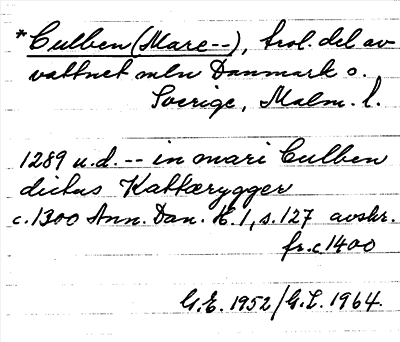 *Culben (Mare--), trol. del av
vattnet mln Danmark o.
Sverige, Malm. l.
1289 u.d. -- in mari Culben
dictus Kattærygger
c.1300 Ann. Dan. K.1, s.127 avskr.
fr. c.1400
G.E. 1952/G.L. 1964.